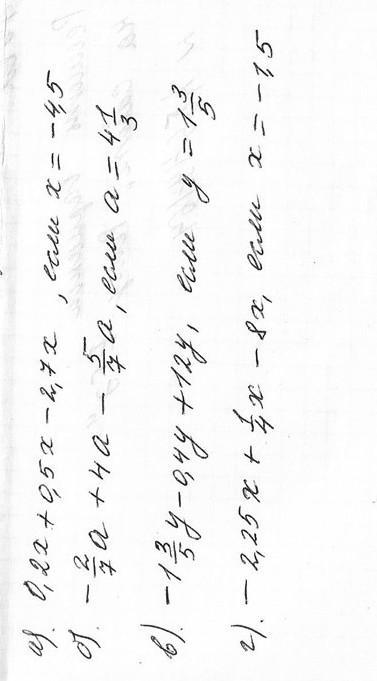 а). 0,2x + 0,5x - 2,7x, если x = -4,5
б). -2/7 a + 4a - 5/7 a, если a = 4 1/3
в). -1 3/5 y - 0,4y + 12y, если y = 1 3/5
г). -2,25x + 1/4 x - 8x, если x = -1,5